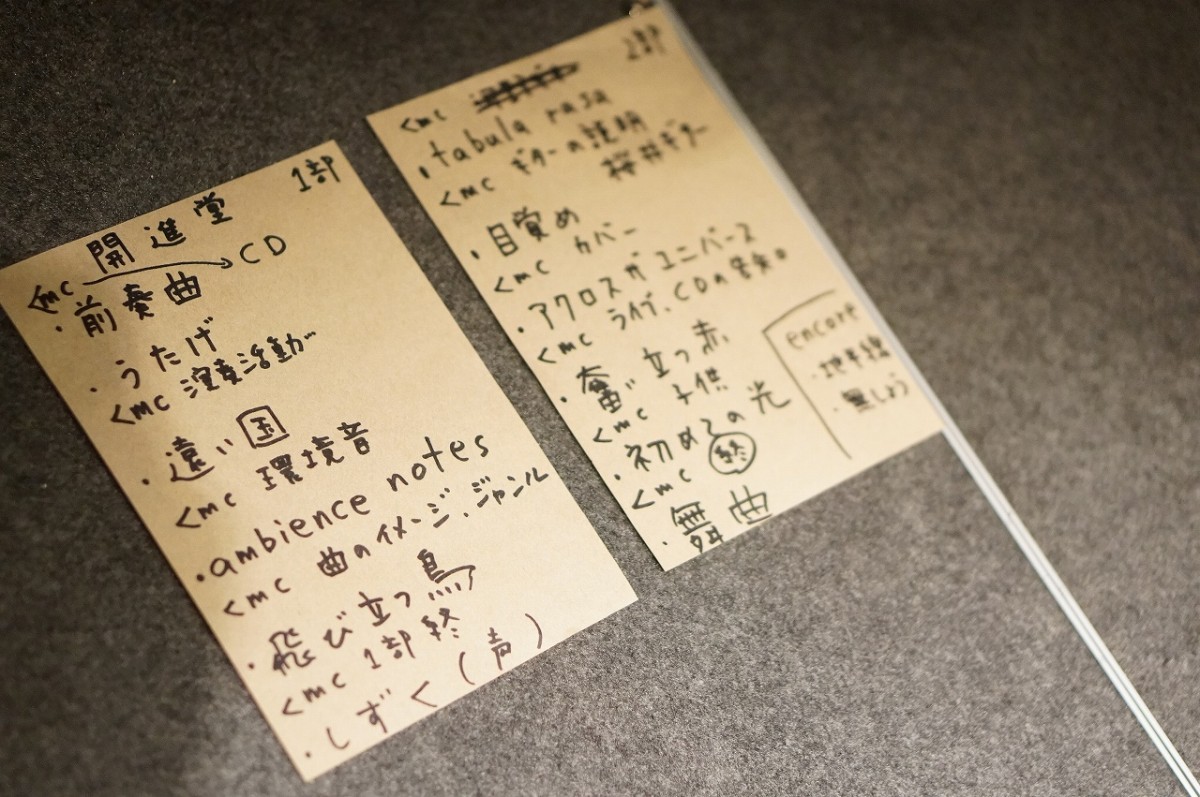 1部
<mc 開進堂
→CD
・前奏曲
・うたげ
<mc 演奏活動…
・遠い国
<mc 環境音
・ambience notes
<mc 曲のイメージ、ジャンル
・飛び立つ鳥
<mc 1部終
・しずく(声)
2部
<mc
・tabula rasa
<mc ギターの説明
桜井ギター
・目覚め
<mc カバー
・アクロスザユニバース
<mc ライブ、CDの音楽
・奮い立つ赤
<mc 子供
・初めての光
<mc 終
・舞曲
encore
・地平線